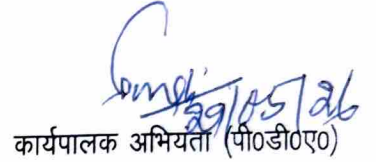 29/05/26
कार्यपालक अभियंता (पी०डी०ए०)